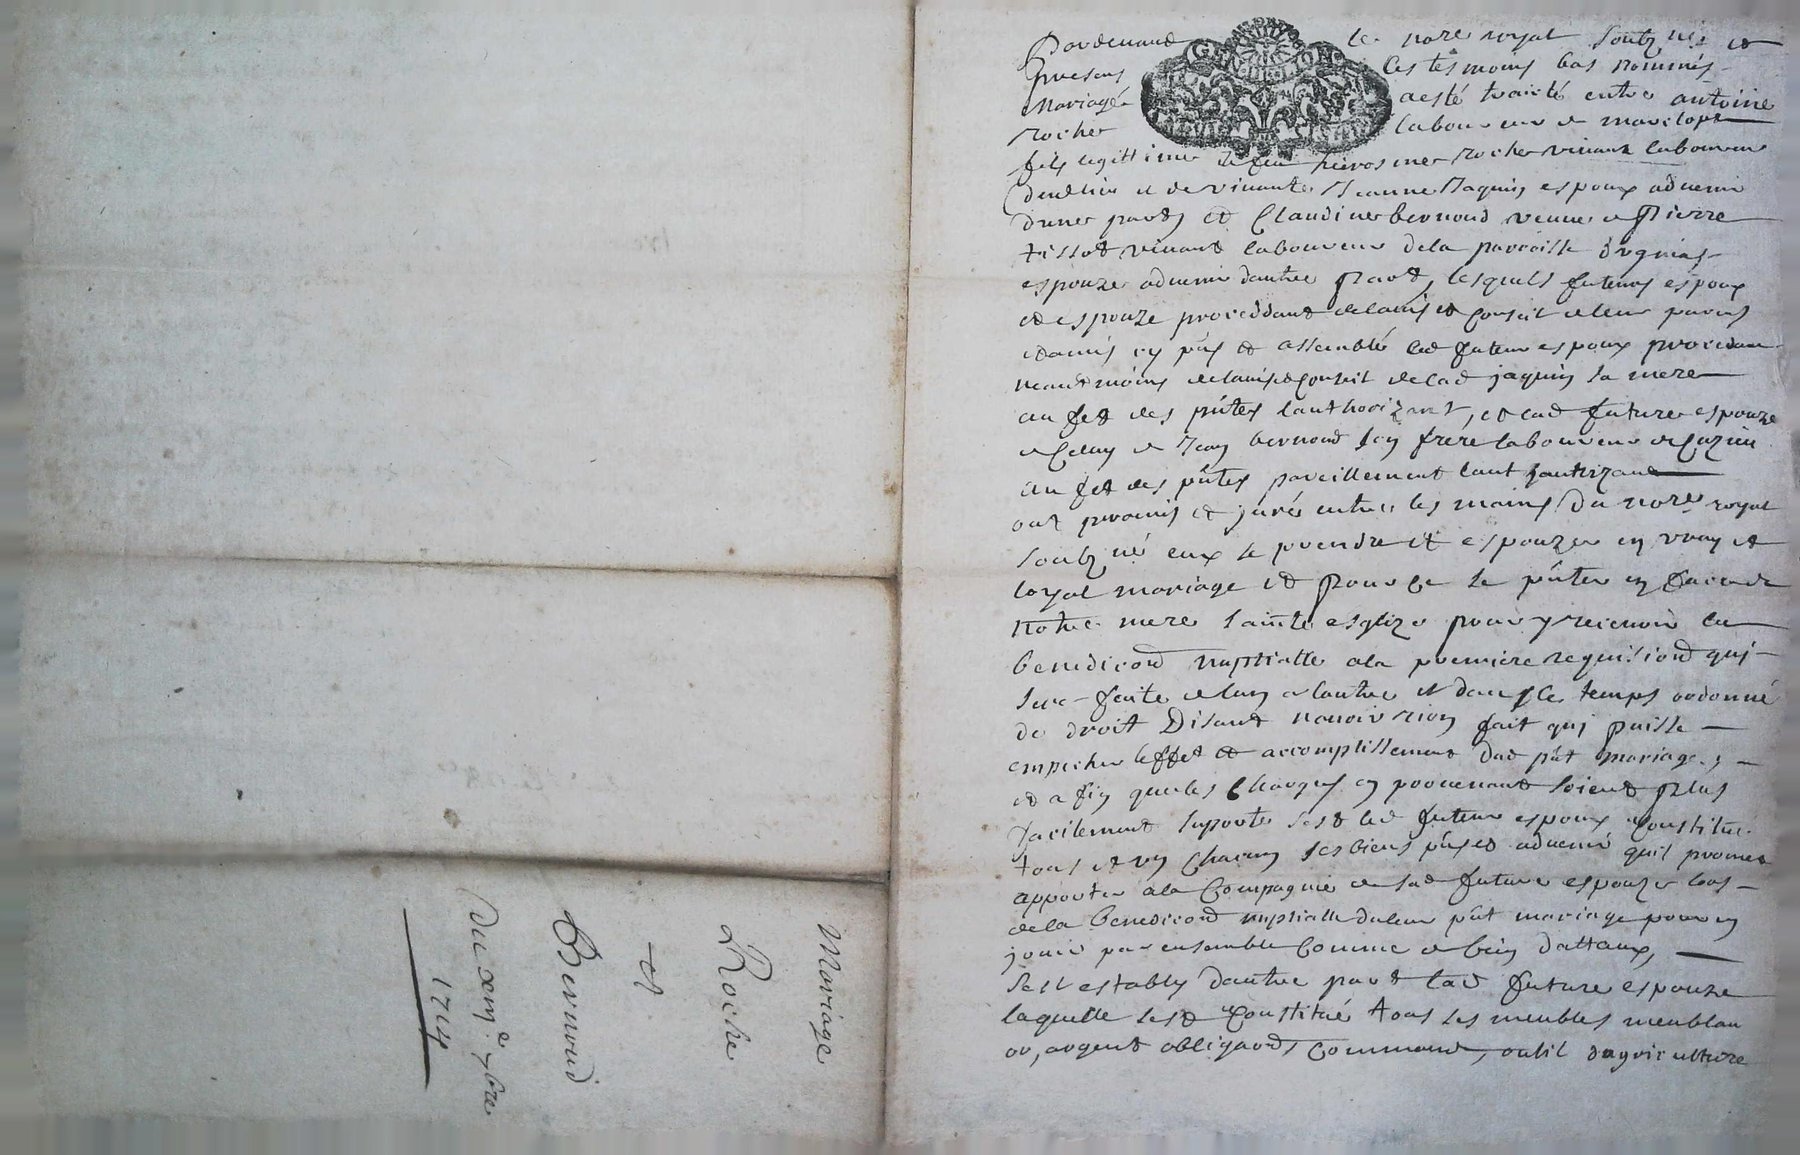 Mariage
Roche
et
Bernoud
Du xem.e 7bre
1714
Pardevant le nore royal soubz né et
presens les tesmoins bas nommés
Mariage a esté traitté entre antoine
rocher laboureur de
fils legittime de feu hierosme rocher vivant laboureur
et de vivante Jeanne Jaquin espoux advenir
dune part et Claudine bernoud veuve de Pierre
tissot vivant laboureur de la parroisse
espouze advenir dautre Part, lesquels futeurs espoux
et espouze proceddant de lavis et conseil de leur parens
et amis cy pns et assemblé led futeur espoux procedant
neantmoins de lavis et conseil de lad jaquin sa mere
au fet des pntes lauthorizant, et lad future espouze
de celuy de Jean bernoud son frere laboureur de
au fet des pntes pareillement
ont promis et juré entre les mains du nore royal
soubz né eux se prendre et espouzer en vray et
loyal mariage et Pour ce se pnter en face de
notre mere sainte esglize pour y recevoir la
benedicon nuptialle a la premiere requision qui
sera feite de lun a lautre et dans le temps ordonné
de droit Disant navoir rien fait qui puisse
empecher leffet et accomplissement dud pnt mariage,
et a fin que les charges en provenant soient plus
facilement suporté sest led futeur espoux constitué
tous et un chacun ses biens pns et advenir quil promet
apporter a la Compagnie de sad future espouze lors
de la benedicon nuptialle du leur pnt mariage pour en
jouir par ensemble comme de bien dottaux,
sest estably dautre part lad future espouze
laquelle sest constitué tous ses meubles meublan
or, argent obligaons, commans, outil dagriculture